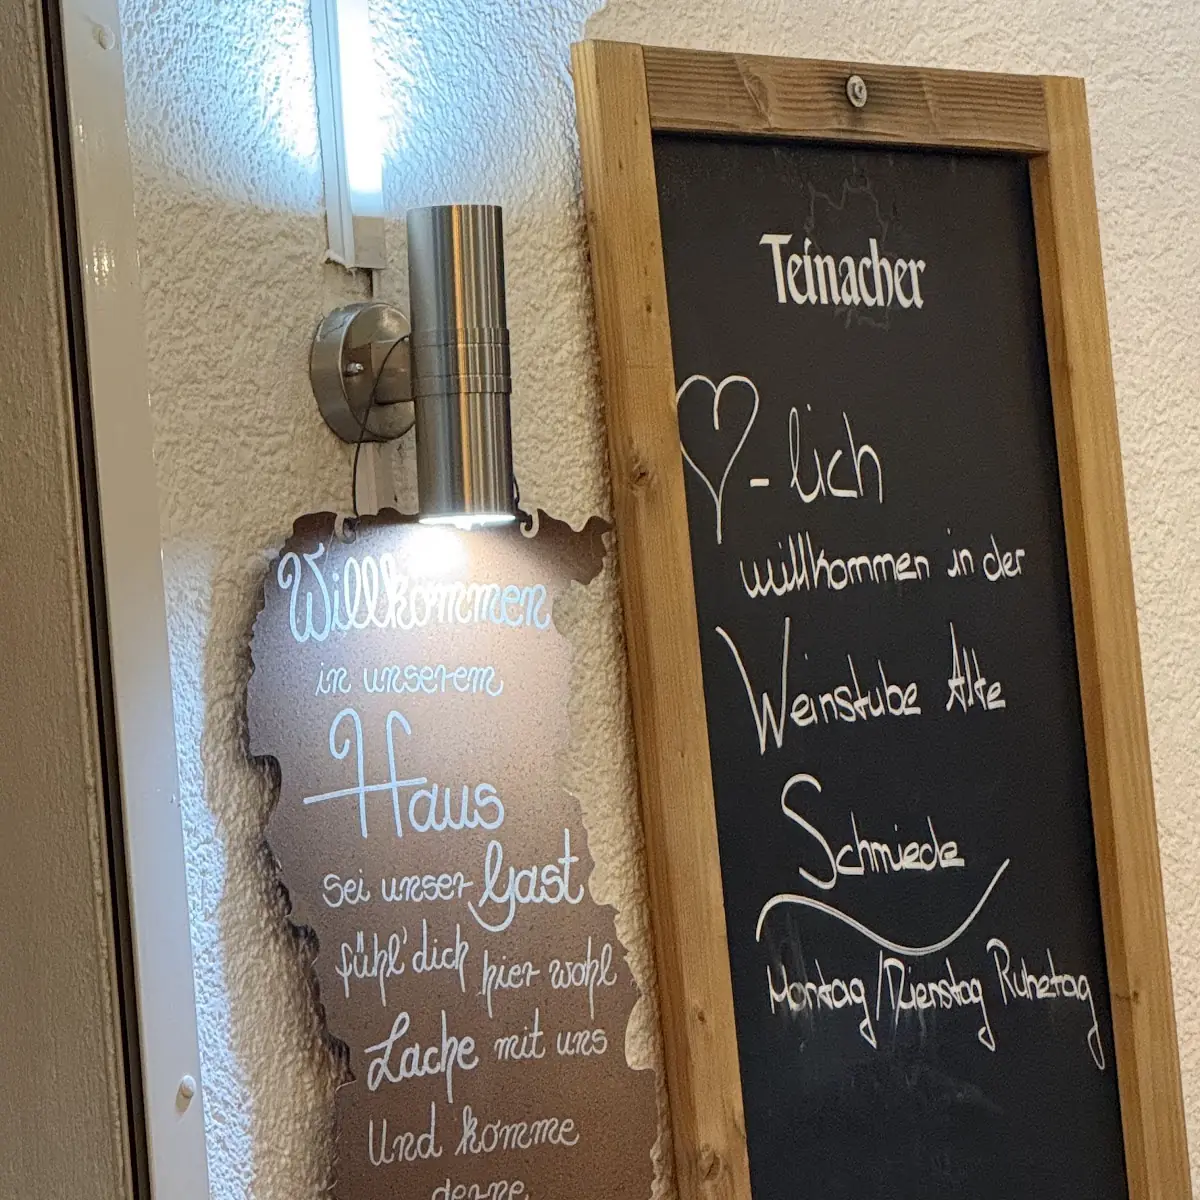 Willkommen
in unserem
Haus
sei unser Gast
fühl' dich hier wohl
Lache mit uns
Und komme
gerne
Teinacher
-lich
willkommen in der
Weinstube Alte
Schmiede
Montag/Dienstag Ruhetag